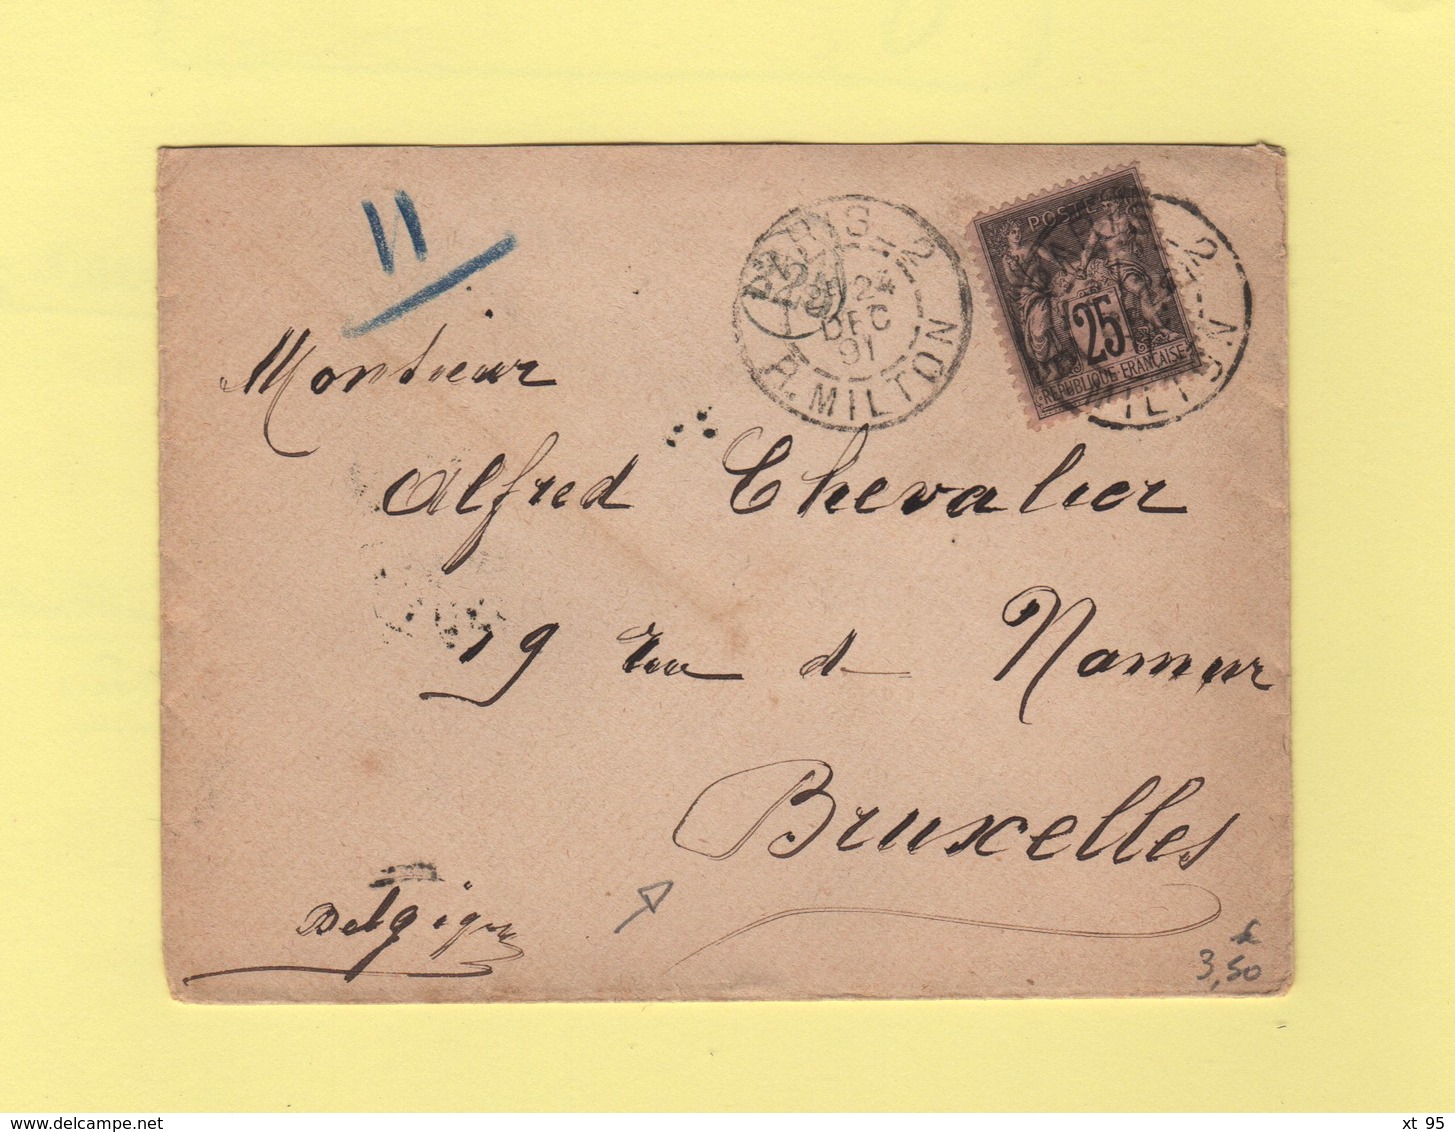 11
PARIS_2
24
DEC
91
R. MILTON
POSTES
25
REPUBLIQUE FRANÇAISE
2
MILTON
Monsieur
Alfred Chevalier
19 rue de Namur
Bruxelles
Belgique
3,50
www.delcampe.net
xt 95